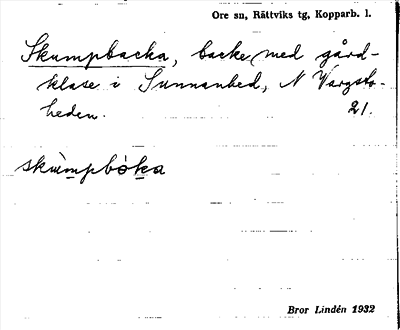 Ore sn, Rättviks tg, Kopparb. l.
Skumpbacka, backe med gård-
klase i Sunnanhed, N Vargsto-
heden. 21.
skùmpbòka
Bror Lindén 1932